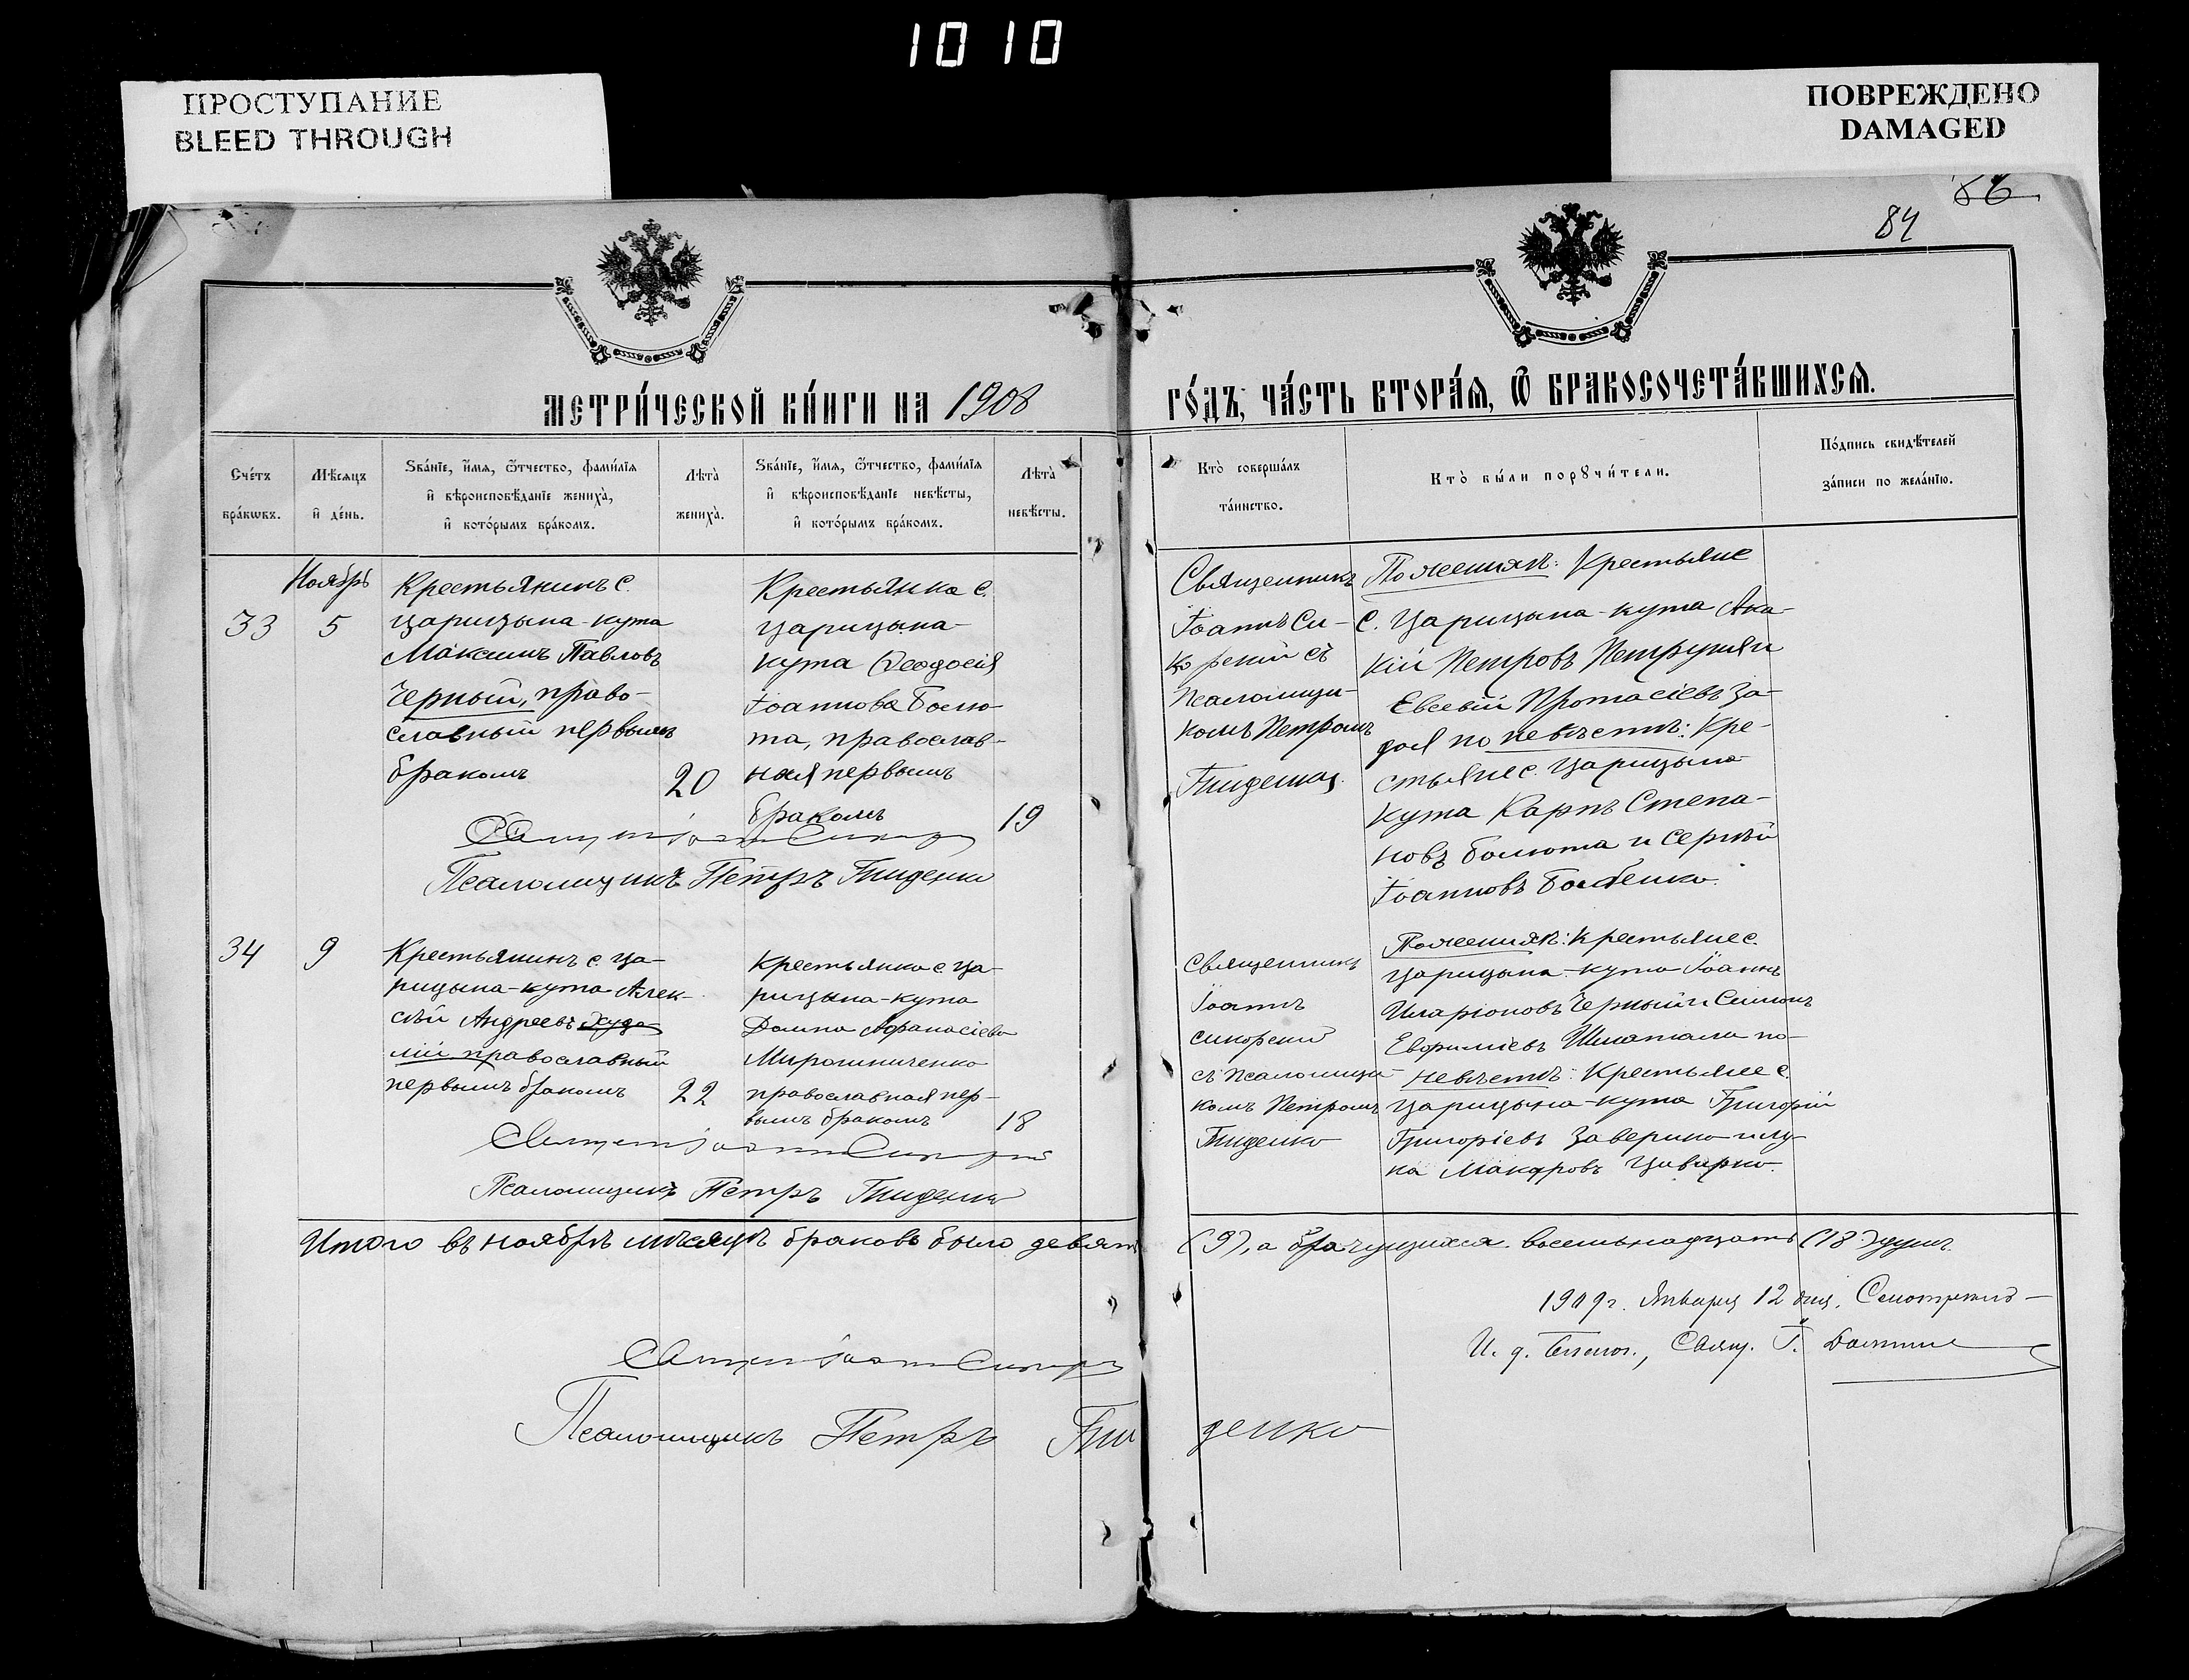 1010
ПРОСТУПАНИЕ
BLEED THROUGH
ПОВРЕЖДЕНО
DAMAGED
86
84
МЕТРИ́ЧЕСКОЙ КНИ́ГИ НА 1908
ГО́ДЪ, ЧА́СТЬ ВТОРА́Я, Ѿ БРАКОСОЧЕТА́ВШИХСЯ.
Сче́тъ бра́кѡвъ.
Мѣ́сяцъ и҆ де́нь.
Ѕва́нїе, и҆́мя, ѻ҆́тчество, фами́лїя
и҆ вѣроисповѣ́данїе жениха̀,
и҆ кото́рымъ бра́комъ.
Лѣ́та̀ жениха̀.
Ѕва́нїе, и҆́мя, ѻ҆́тчество, фами́лїя
и҆ вѣроисповѣ́данїе невѣ́сты,
и҆ кото́рымъ бра́комъ.
Лѣ́та̀ невѣ́сты.
Кто̀ соверша́лъ
та́инство.
Кто̀ бы́ли порꙋчи́тели.
По́дпись свидѣ́телей
за́писи по жела́нїю.
Ноябрь
33
5
Крестьянинъ с.
Царицына-кута
Максимъ Павловъ
Черный, право-
славный первымъ
бракомъ
20
Крестьянка с.
Царицына-
кута Ѳеодосія
Іоаннова Болю-
та, православ-
ная первымъ
бракомъ
19
Священникъ
Іоаннъ Си-
корскій съ
псаломщи-
комъ Петромъ
Гниденко
По женихѣ: Крестьяне
с. Царицына-кута Ака-
кій Петровъ Петруня и
Евсевій Протасіевъ За-
дол по невѣстѣ: Кре-
стьяне с. Царицына
кута Карпъ Степа-
новъ Болюта и Сергѣй
Іоанновъ
Псаломщикъ Петръ Гниденко
34
9
Крестьянинъ с. Ца-
рицына-кута Алек-
сѣй Андреевъ Худо
лій православный
первымъ бракомъ
22
Крестьянка с. Ца-
рицына-кута
Домна Афанасіева
Мирошниченко
православная пер-
вымъ бракомъ
18
Священникъ
Іоаннъ
Сикорскій
съ псаломщи-
комъ Петромъ
Гниденко
По женихѣ: Крестьяне с.
Царицына-кута Іоаннъ
Иларіоновъ Черный и Симонъ
Евфиміевъ по
невѣстѣ: Крестьяне с.
Царицына-кута Григорій
Григорієвъ Заверико и Лу-
ка Макаровъ
Псаломщикъ Петръ Гниденко
Итого въ ноябрѣ мѣсяцѣ браковъ было девять (9), а брачущихся восемьнадцать (18) душъ.
1909 г. Января 12 дня. Смотрѣлъ
И. д. Благоч., Свящ. Г.
Псаломщикъ Петръ Гниденко